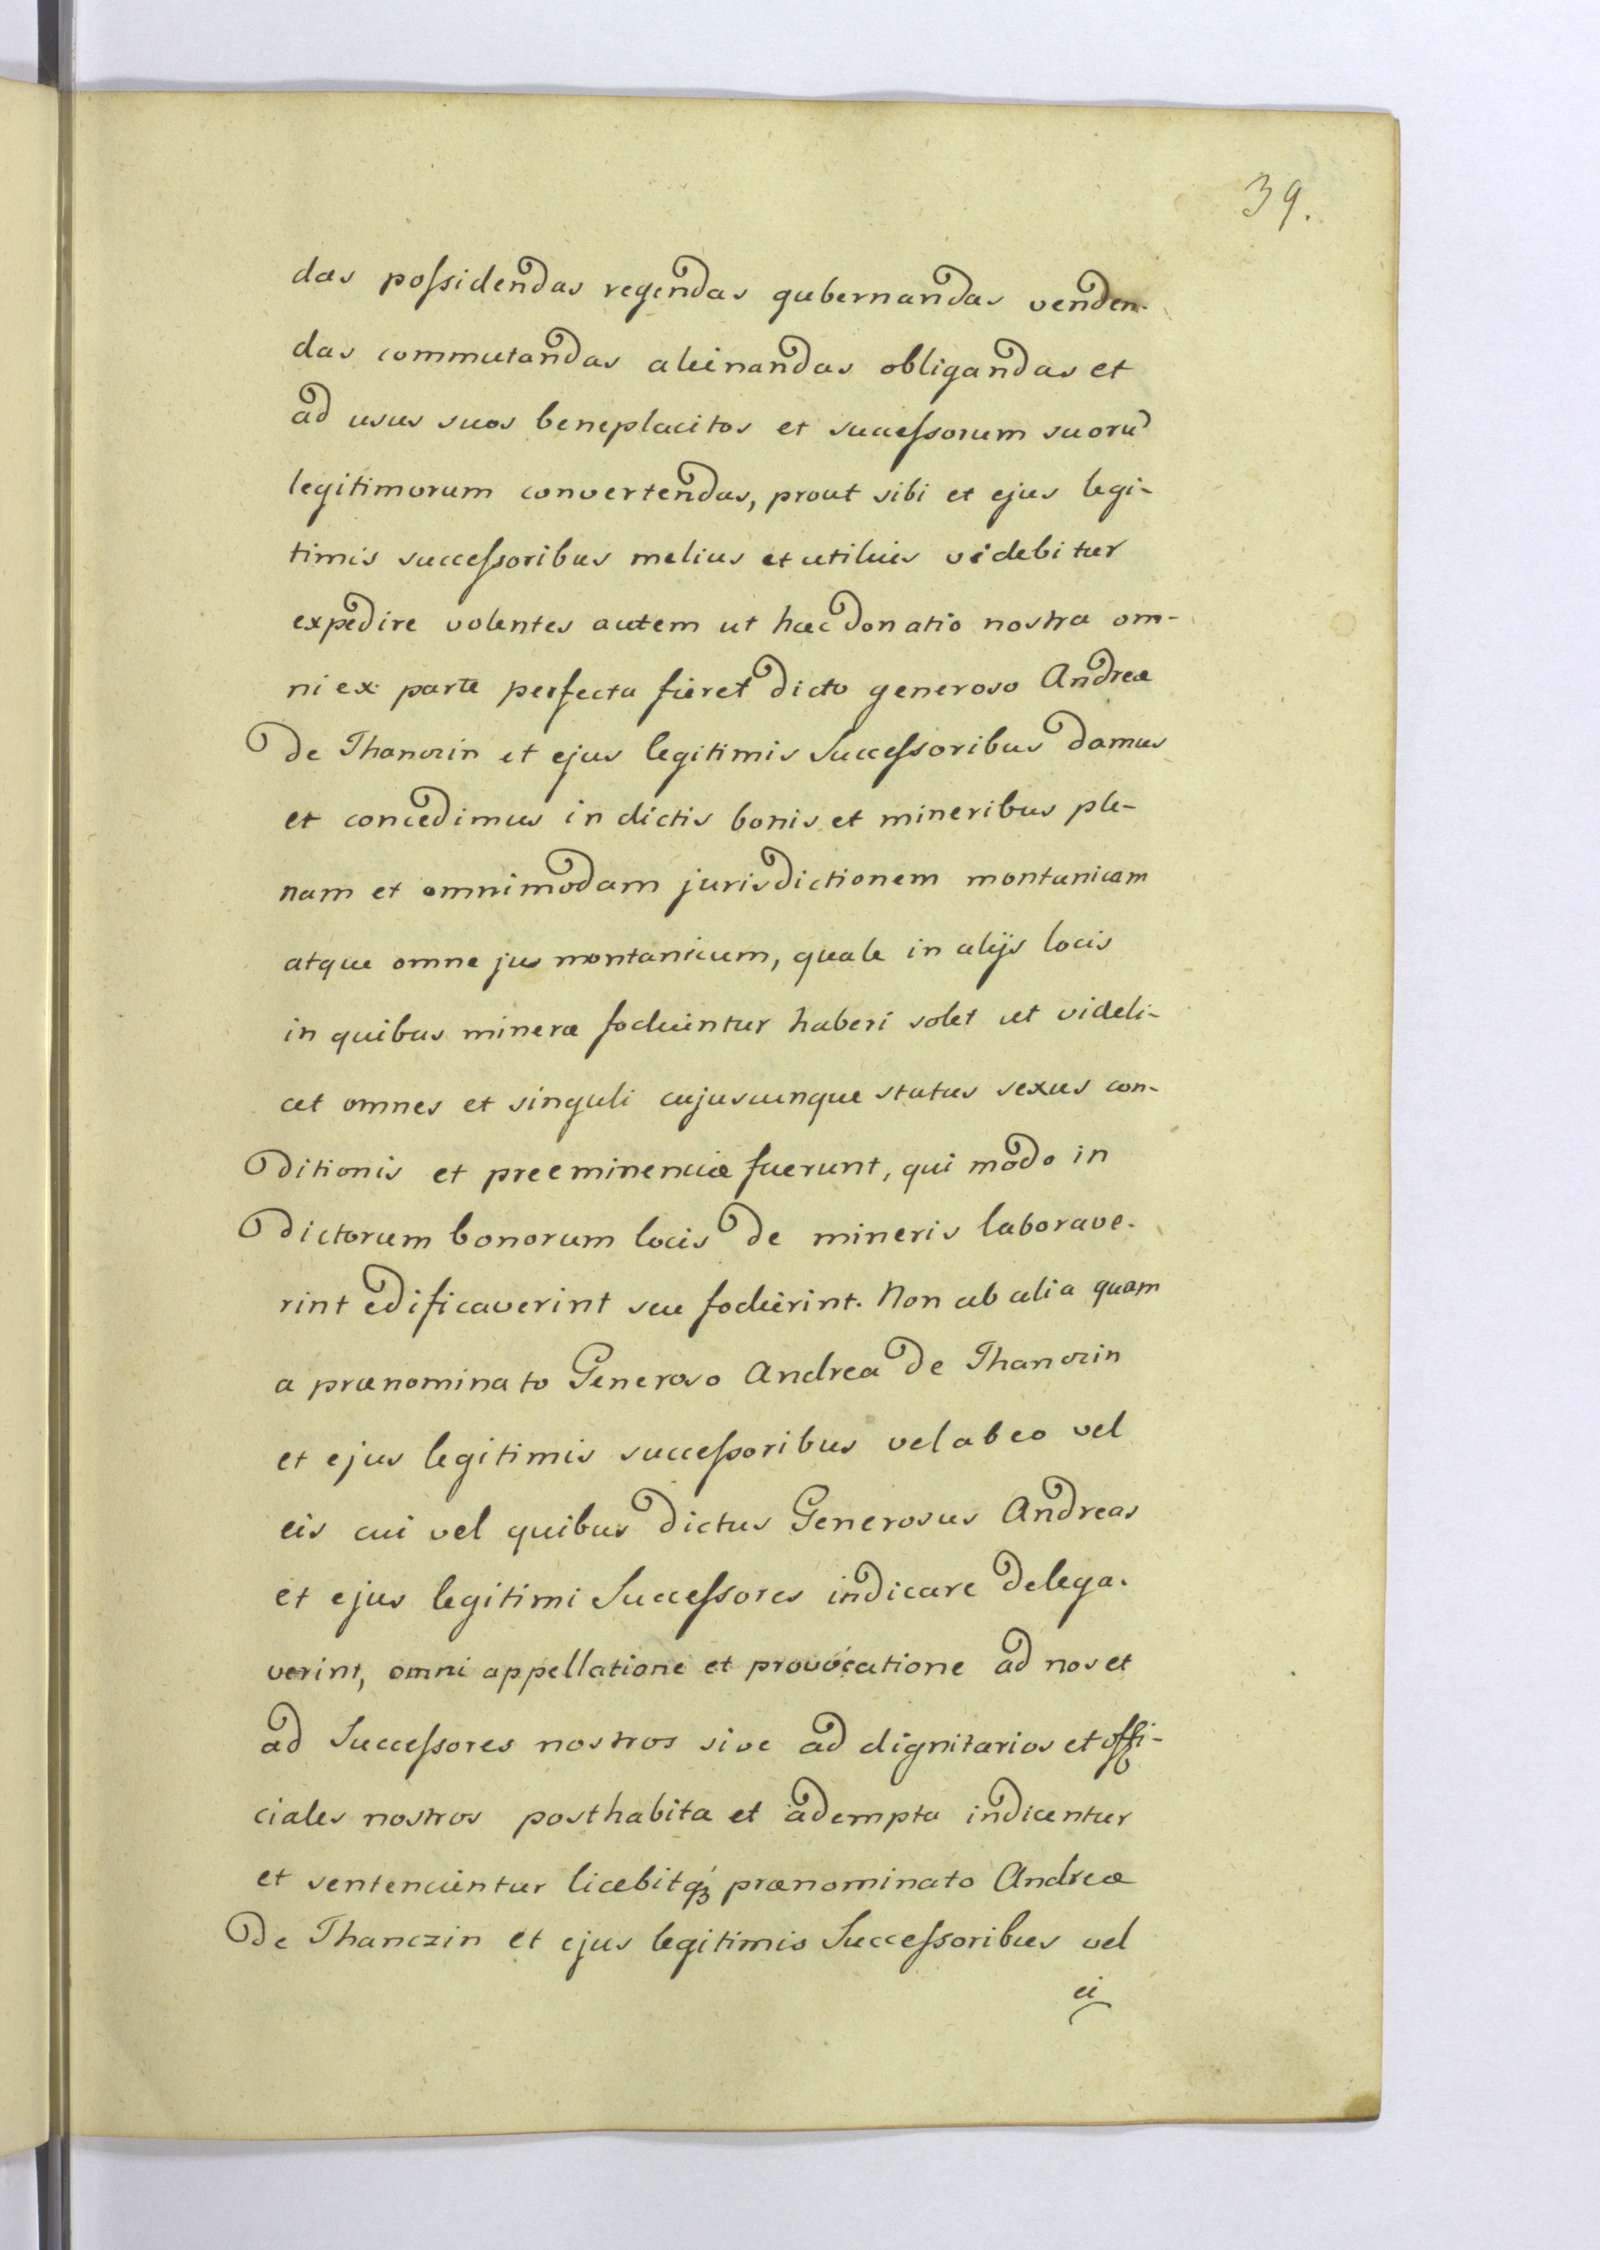 39.
das possidendas regendas gubernandas venden-
das commutandas aleinandas obligandas et
ad usus suos beneplacitos et successorum suorū
legitimorum convertendas, prout sibi et ejus legi-
timis successoribus melius et utilius videbitur
expedire volentes autem ut hæc donatio nostra om-
ni ex parte perfecta fieret dicto generoso Andreæ
de Thanczin et ejus legitimis Successoribus damus
et concedimus in dictis bonis et mineribus ple-
nam et omnimodam jurisdictionem montanicam
atque omne jus montanicum, quale in alijs locis
in quibus mineræ fodiuntur haberi solet ut videli-
cet omnes et singuli cujuscunque status sexus con-
ditionis et preeminenciæ fuerunt, qui modo in
dictorum bonorum locis de mineris laborave-
rint edificaverint seu foderint. Non ab alia quam
a prænominato Generoso Andrea de Thanczin
et ejus legitimis successoribus vel ab eo vel
eis cui vel quibus dictus Generosus Andreas
et ejus legitimi Successores indicare delega-
verint, omni appellatione et provocatione ad nos et
ad Successores nostros sive ad dignitarios et offi-
ciales nostros posthabita et adempta indicentur
et sentencientur licebitq́ꝫ prænominato Andreæ
de Thanczin et ejus legitimis Successoribus vel
ei